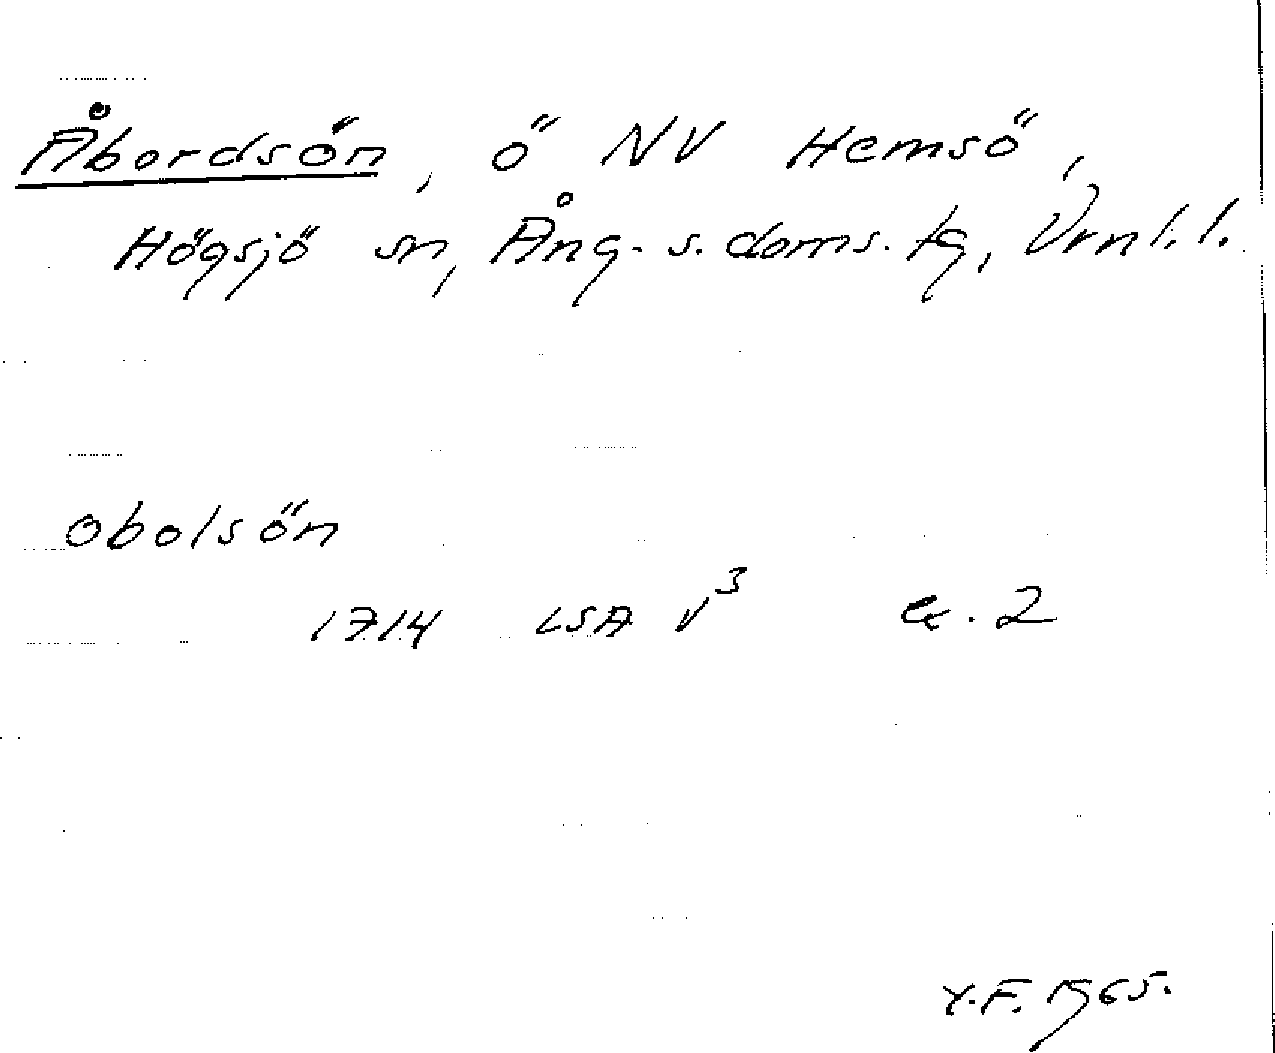 Åbordsön, ö NV Hemsö,
Högsjö sn, Ång. s. doms. tg, Vrnl. l.
obolsön
1714 LSA V³ ex. 2
Y.F. 1965.